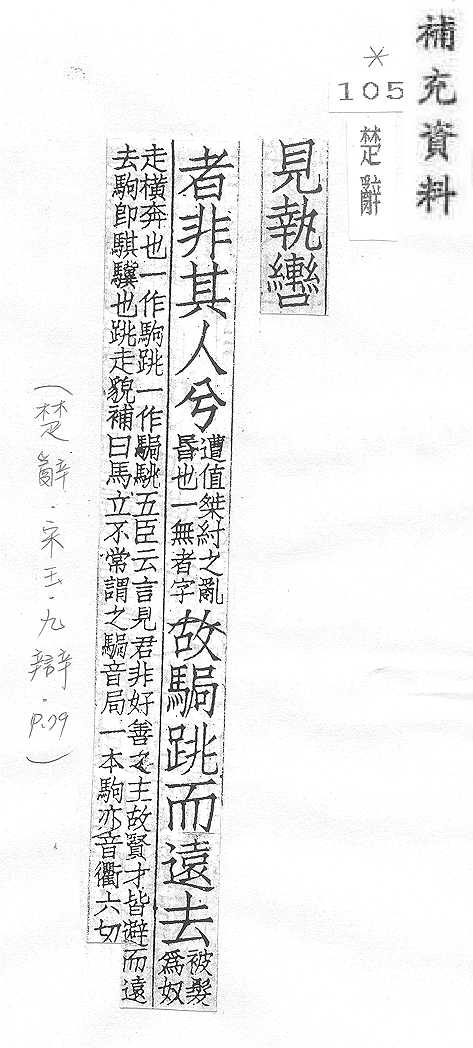 補充資料
*
105
楚辭
見執轡
者非其人兮遭值桀紂之亂昬也一無者字故駶跳而遠去被髮爲奴
走橫奔也一作駒跳一作駶駣五臣云言見君非好善之主故賢才皆避而遠
去駒即騏驥也跳走貌補曰馬立不常謂之駶音局一本駒亦音衢六切
(楚辭·宋玉·九辯·p.79)